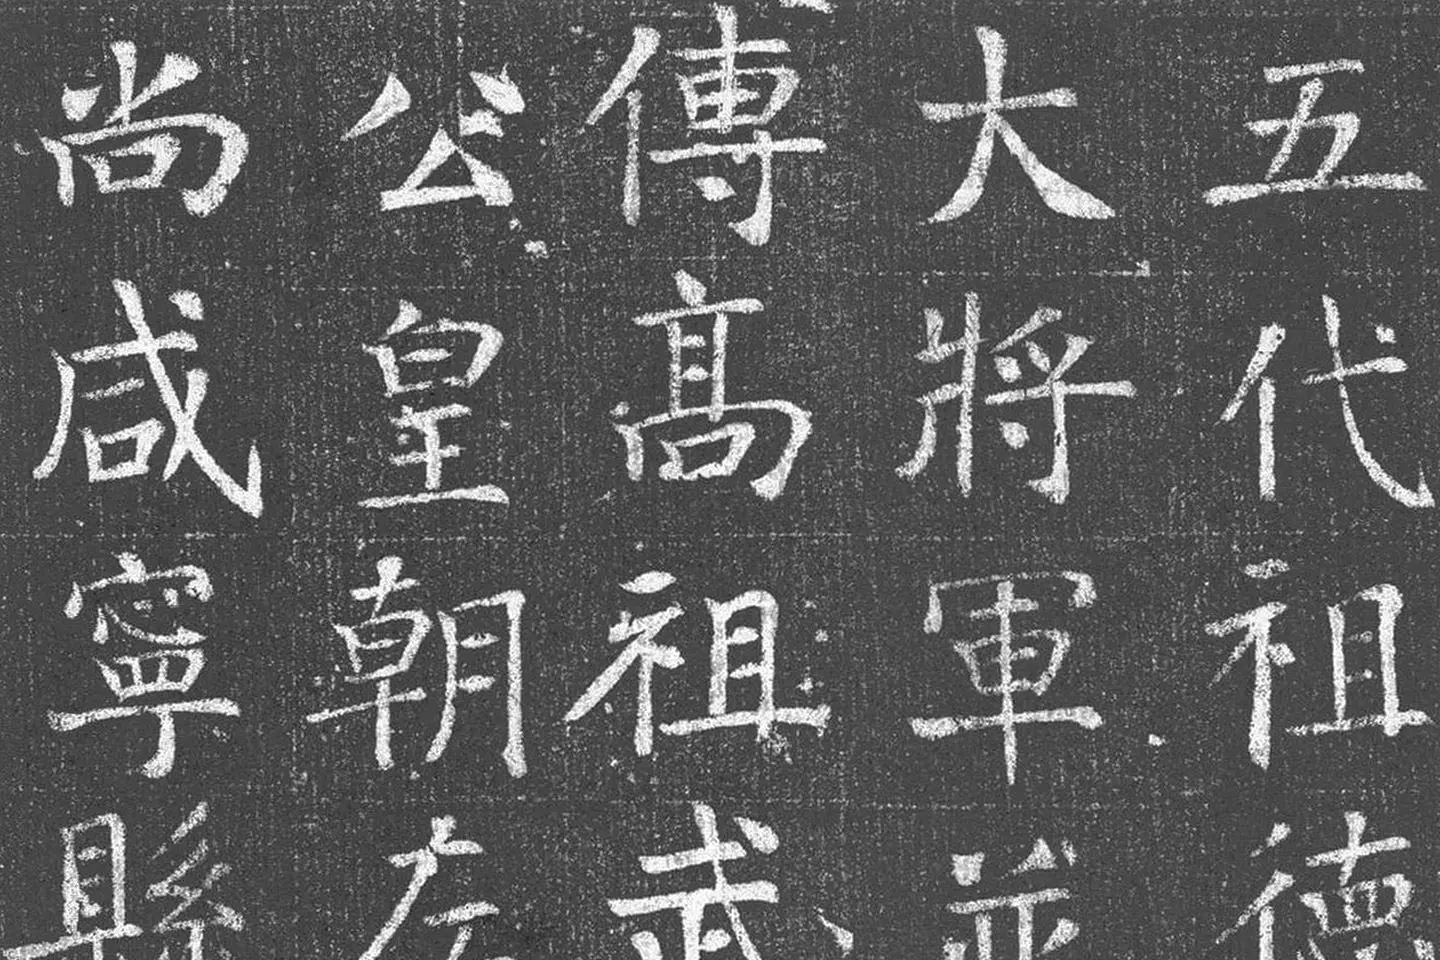 五代祖德
大將軍並
傳高祖武
公皇朝左
尚咸寧縣